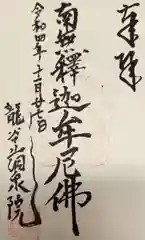 奉拝
南無釋迦牟尼佛
令和四年十二月廿七日
龍谷山
泉院